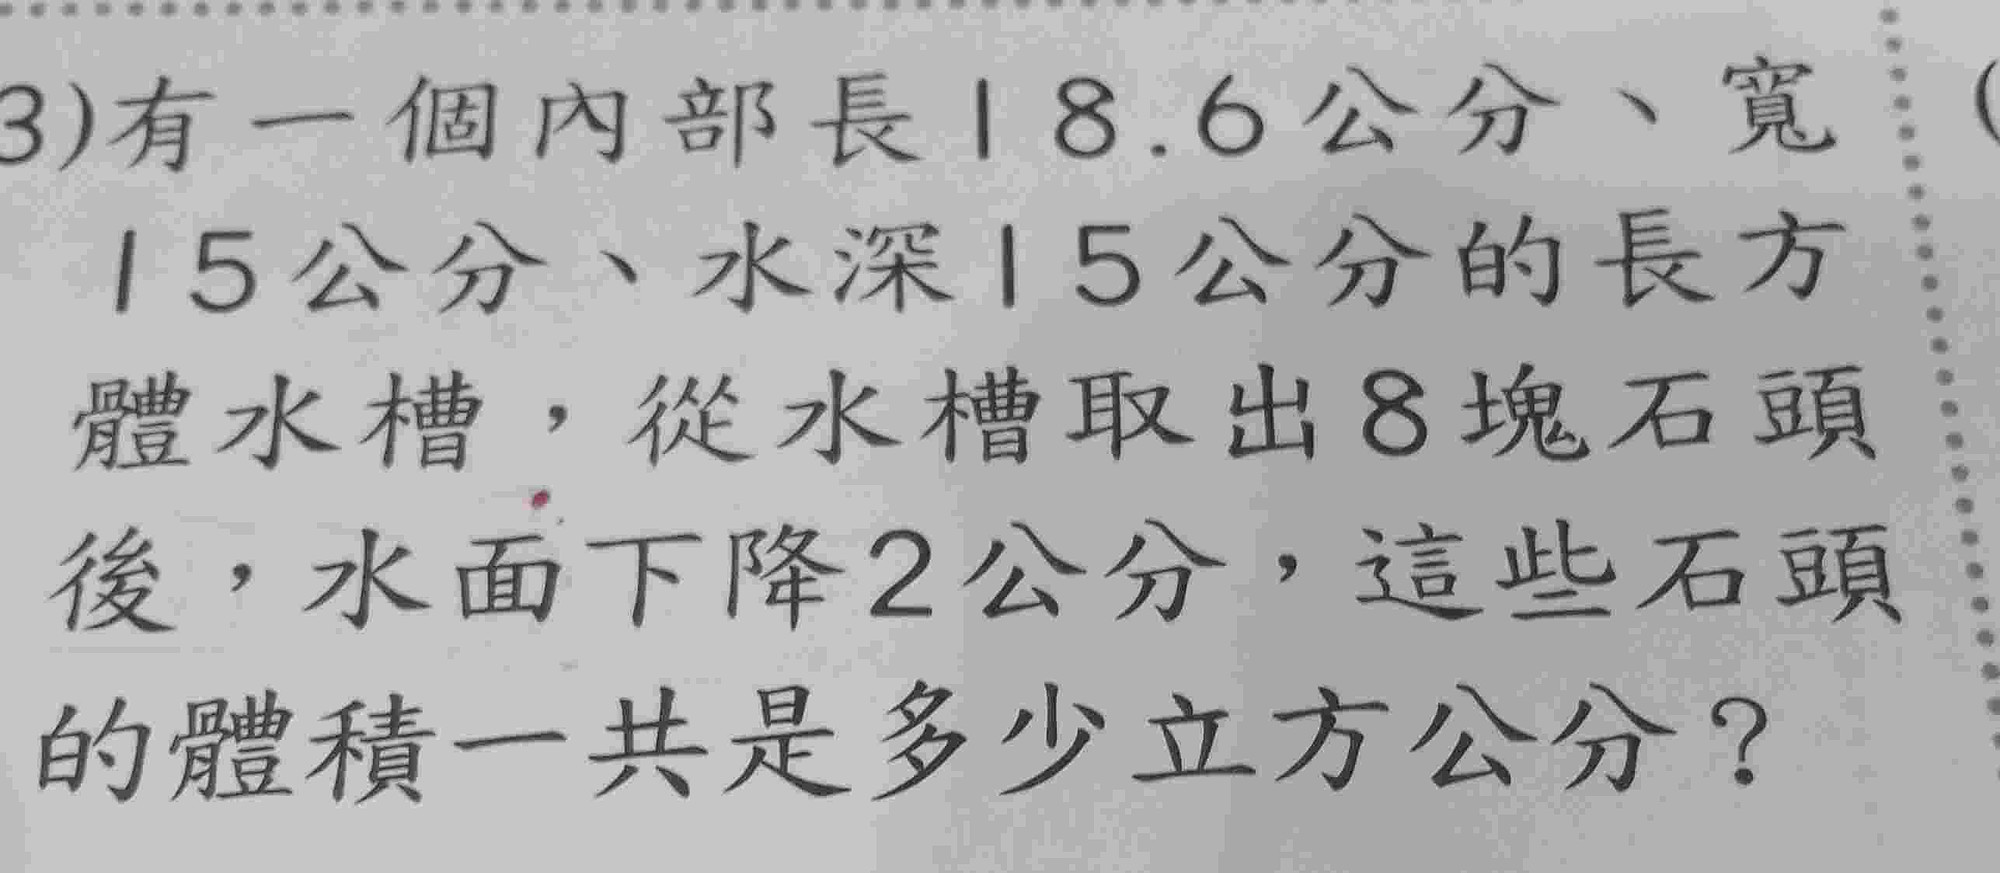 3)有一個內部長18.6公分、寬
15公分、水深15公分的長方
體水槽，從水槽取出8塊石頭
後，水面下降2公分，這些石頭
的體積一共是多少立方公分？
(